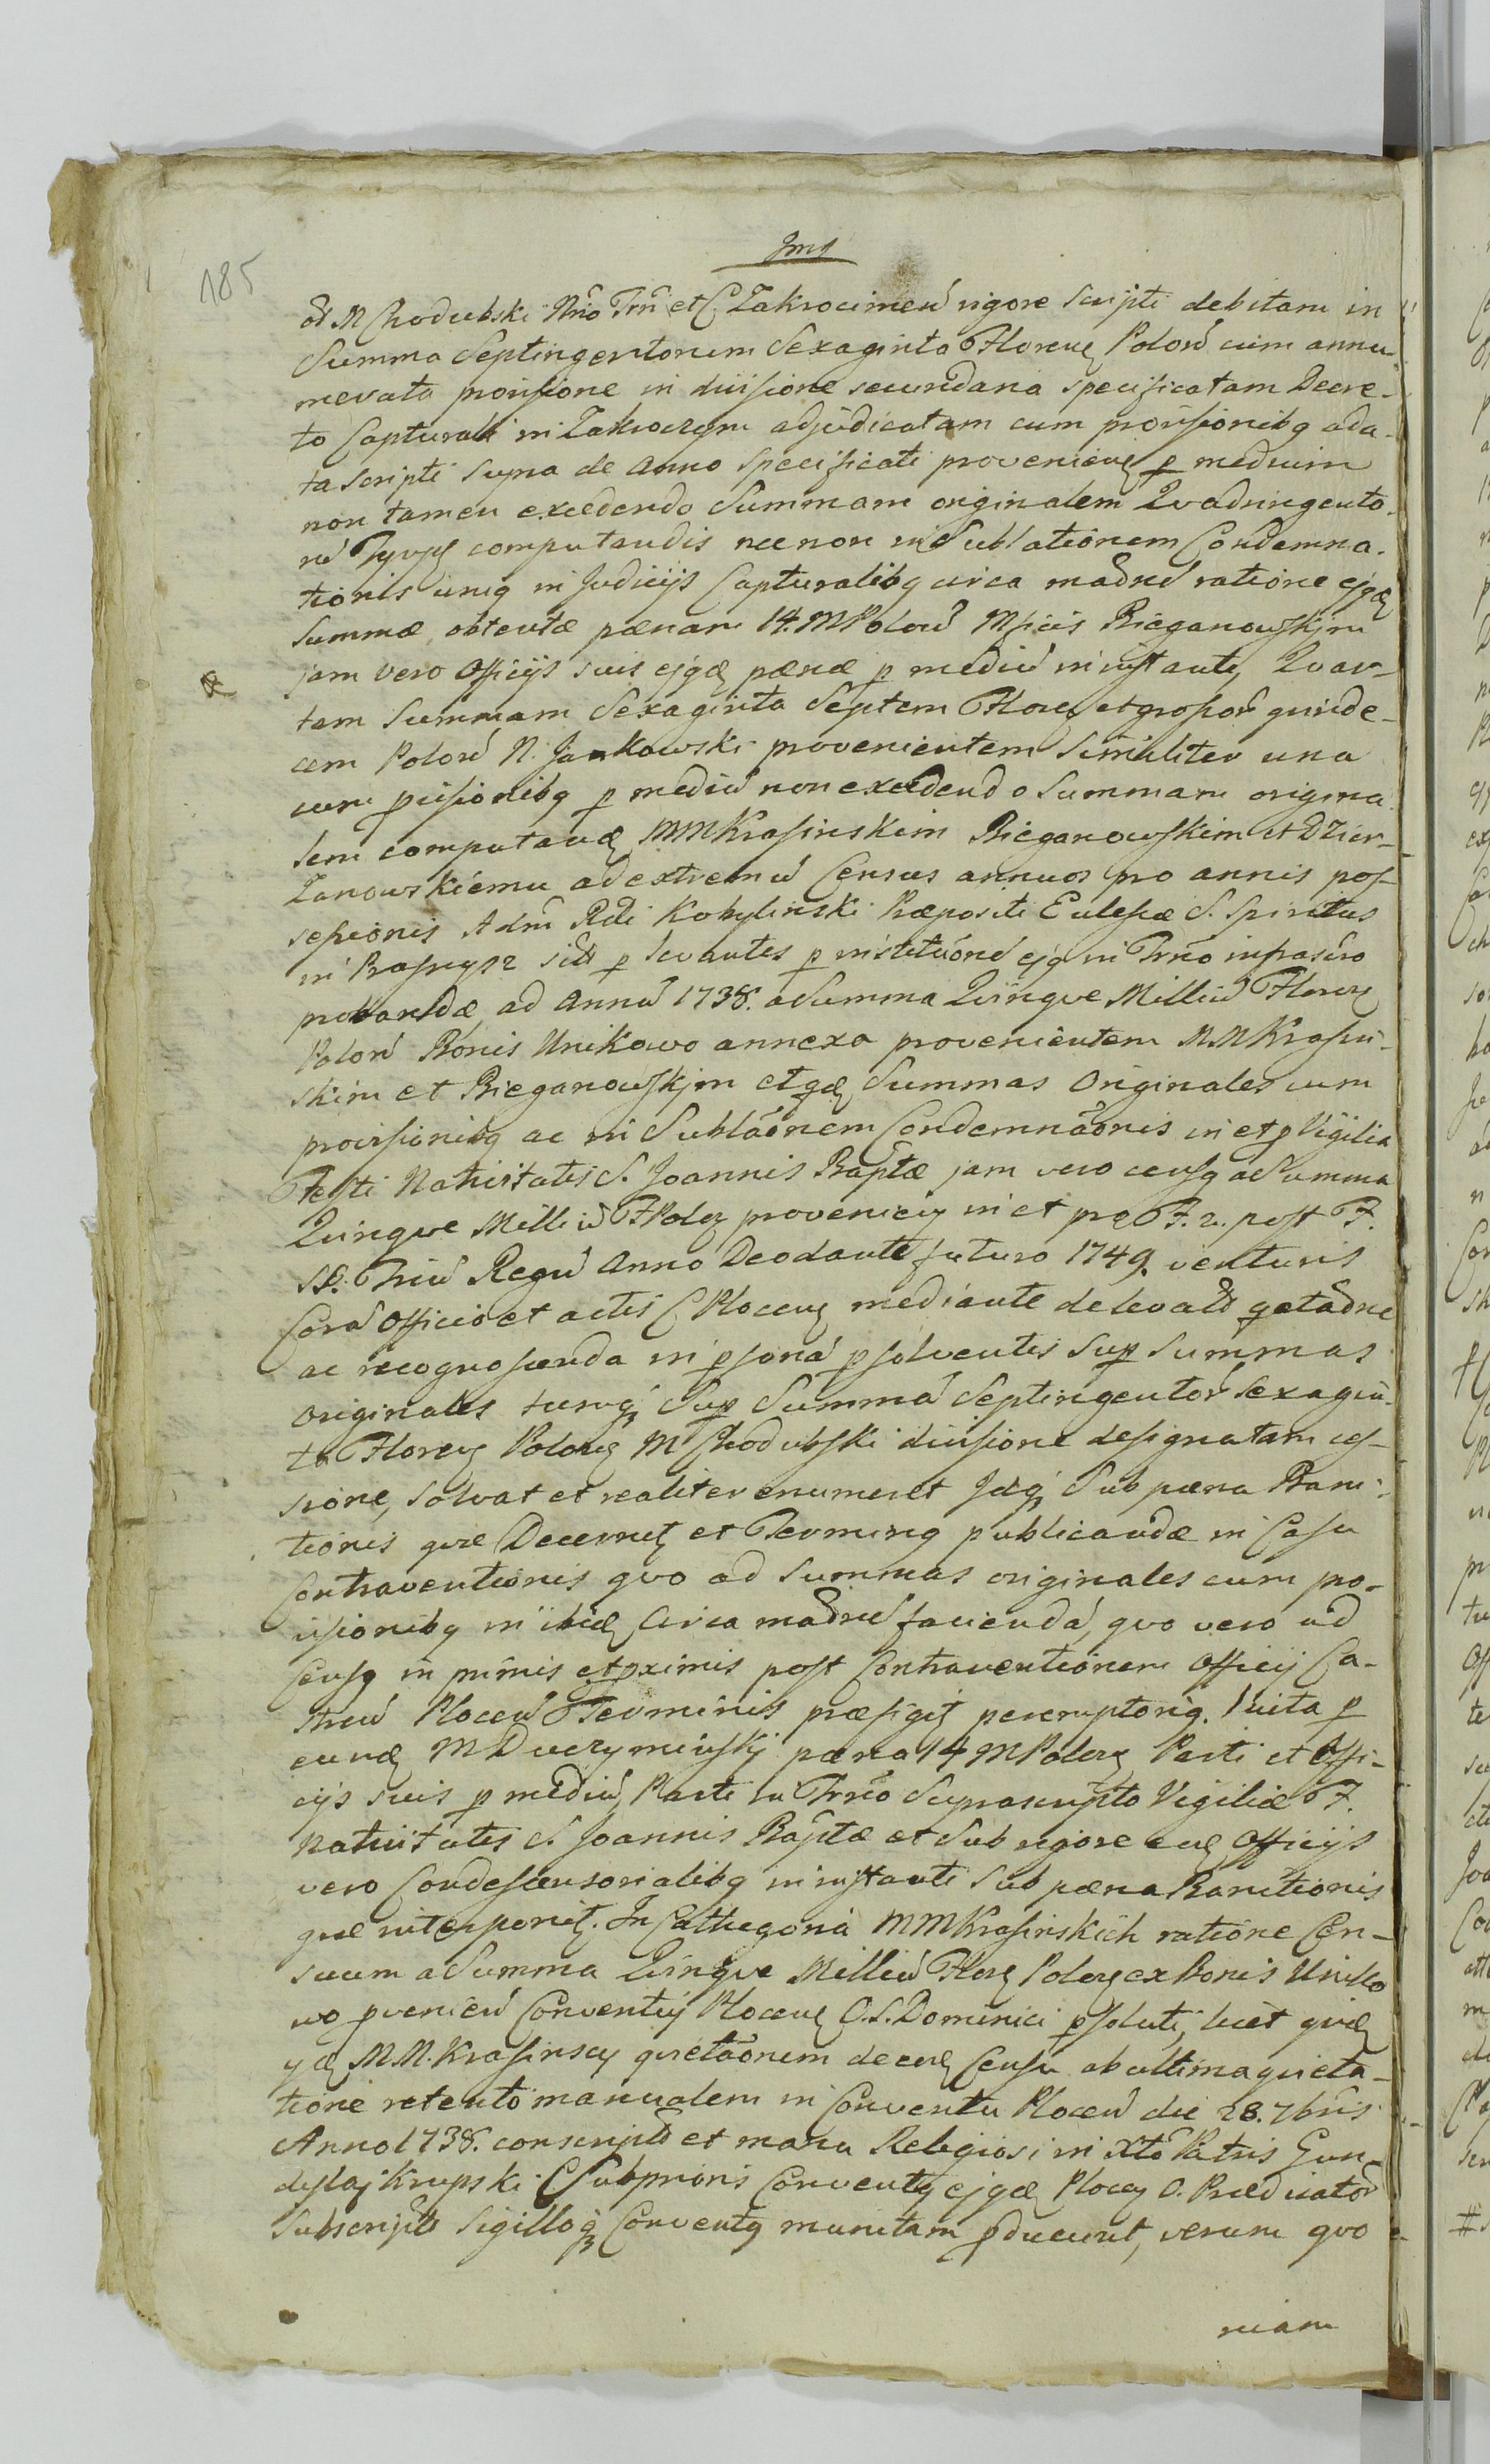 Jms
185
od M Chodubski Nro Trn et C Zakrocimen vigore scripti debitam in
Summa Septingentorum Sexaginta Floren Polon cum annu-
merata provisione in divisione secundaria specificatam Decre-
to Capturali in Zakroczym adjudicatam cum provisionibq a da-
ta scripti supra de Anno specificati provenien p medium
non tamen excedendo Summam originalem Qvadringento-
rũ computandis nec non in Sublationem Condemna-
tionis uniq in Judicijs Capturalibq circa ratione ejq
Summæ obtentæ pænam 14. M Polon Mficis Bieganowskjm
jam vero Officijs suis ejq pænæ p mediũ in instanti, Qvar-
tam Summam Sexaginta Septem Floren et grossor quinde-
cem Polon N. Jankowski provenientem Similiter una
cum pvisionibq p mediũ non excedendo Summam origina-
lem computan MM Krasinskim Bieganowskim et Dzier-
zanowskiemu ad extremũ Census annuos pro annis pos-
sessionis Adm Rdi Kobylinski Præpositi Ecclesiæ S. Spiritus
in Prasnysz p levantes p institũone ejq in Trno infrascro
probandæ, ad Annũ 1738. a Summa Qvinqve Milliũ Floren
Polon Bonis Unikowo annexa provenientem MM Krasin-
skim et Bieganowskjm Summas Originales cum
provisionibq ac in Sublãonem Condemnãonis in et p Vigilia
Festi Nativitatis S. Joannis Baptæ jam vero censq a Summa
Qvinqve Milliũ F Polon provenien in et pro F. 2. post F.
SS. Triũ Regũ Anno Deodante futuro 1749. venturis
Corã Officio et actis C Plocen mediante de levato
ac recognoscenda in psona psolventis Sup Summas
originales Sup Summã Septingentor Sexagin-
ta Floren Polon M Chodubski divisione designatam ces-
sione, solvat et realiter enumeret Idq Sub pæna Bani-
tionis qvæ Decernit et Terminq publicandæ in Casu
Contraventionis qvo ad Summas originales cum pro-
visionibq in circa faciendã, qvo vero ad
Censq in primis et pximis post Contraventionem Officij Ca-
stren Plocen Terminis præfigit peremptoriq. Luita p
eund M Duczyminskj pæna 14 M Polon Parti et Offi-
cijs suis p mediũ Parti in Trno Suprascripto Vigiliæ F.
Nativitatis S. Joannis Baptæ et Sub rigore Officijs
vero Condescensorialibq in instanti Sub pæna Banitionis
qvæ interponit. In Cathegoria MM Krasinskich ratione Cen-
suum a Summa Qvinqve Milliũ Flor Polon ex Bonis Uniko
wo pvenien Conventuj Plocen O. S. Dominici psoluti, licet
MM. Krasinscy qvietãonem de Censu ab ultima quieta-
tione retento manualem in Conventu Plocen die 28. 7bris
Anno 1738. conscripto et manu Religiosi in Xto Patris Gun-
dyslaj Krupski Subprioris Conventq ejq Plocen O. Prædicator
Subscripto Sigilloq Conventq munitam pducunt, verum qvo
niam